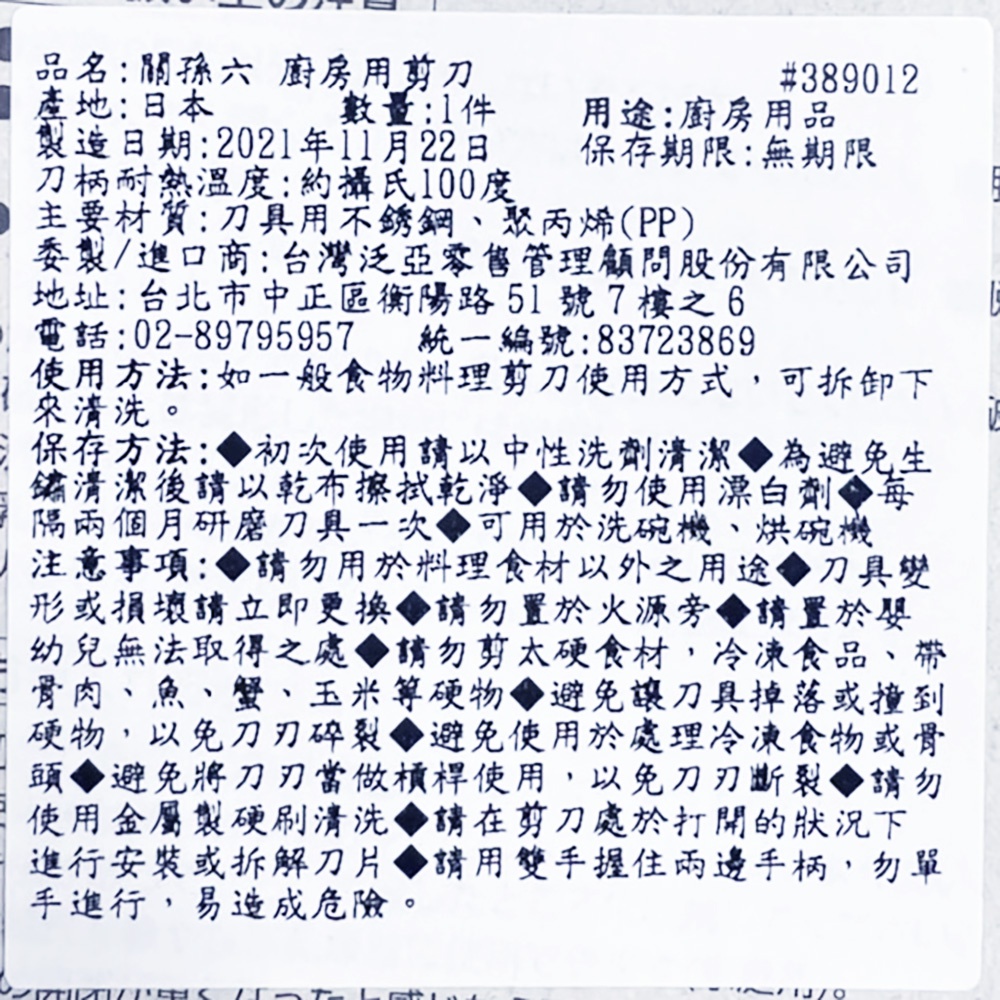 品名:關孫六 廚房用剪刀 #389012
產地:日本 數量:1件 用途:廚房用品
製造日期:2021年11月22日 保存期限:無期限
刀柄耐熱溫度:約攝氏100度
主要材質:刀具用不銹鋼、聚丙烯(PP)
委製/進口商:台灣泛亞零售管理顧問股份有限公司
地址:台北市中正區衡陽路51號7樓之6
電話:02-89795957 統一編號:83723869
使用方法:如一般食物料理剪刀使用方式，可拆卸下
來清洗。
保存方法:◆初次使用請以中性洗劑清潔◆為避免生
鏽清潔後請以乾布擦拭乾淨◆請勿使用漂白劑◆每
隔兩個月研磨刀具一次◆可用於洗碗機、烘碗機
注意事項:◆請勿用於料理食材以外之用途◆刀具變
形或損壞請立即更換◆請勿置於火源旁◆請置於嬰
幼兒無法取得之處◆請勿剪太硬食材，冷凍食品、帶
骨肉、魚、蟹、玉米等硬物◆避免讓刀具掉落或撞到
硬物，以免刀刃碎裂◆避免使用於處理冷凍食物或骨
頭◆避免將刀刃當做槓桿使用，以免刀刃斷裂◆請勿
使用金屬製硬刷清洗◆請在剪刀處於打開的狀況下
進行安裝或拆解刀片◆請用雙手握住兩邊手柄，勿單
手進行，易造成危險。